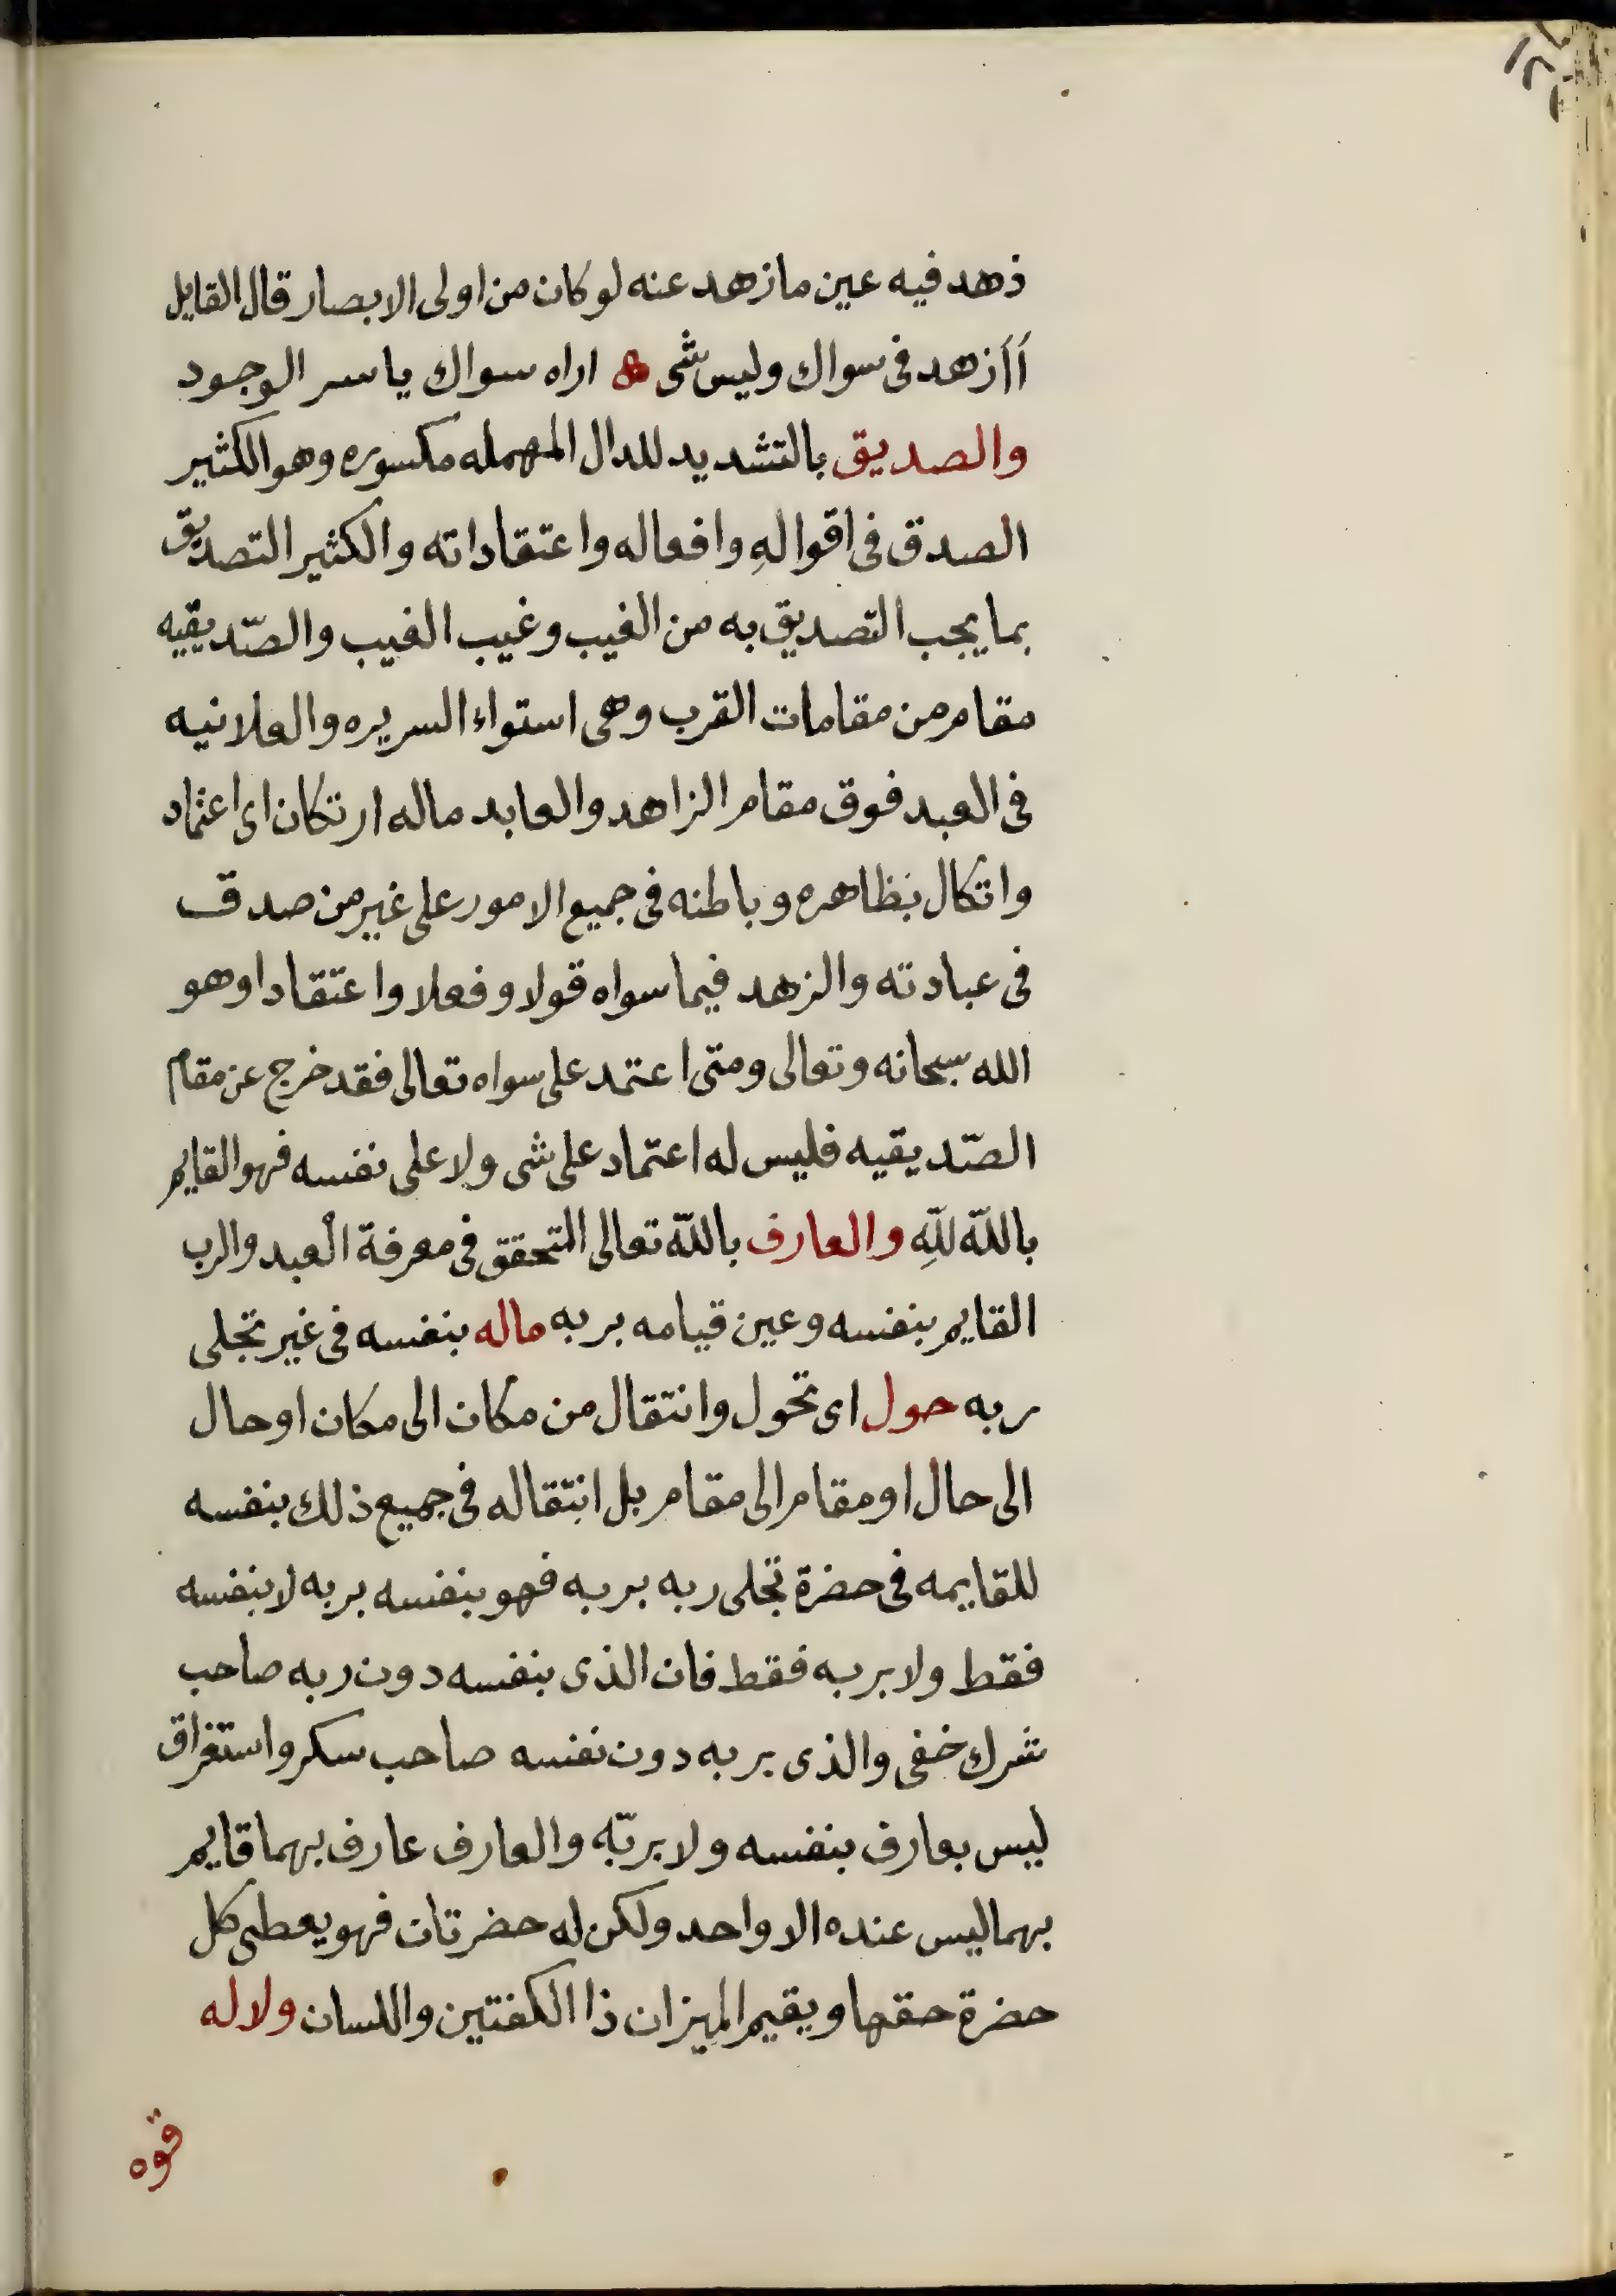 ذهد فيه عين ما زهد عنه لو كان من اولى الابصار قال القايل
أأزهد فى سواك وليس شى اراه سواك يا سر الوجود
والصديق بالتشديد للدال المهمله مكسوره وهو الكثير
الصدق فى اقوالهِ وافعاله واعتقاداته والكثير التصديق
بما يجب التصديق به من الغيب وغيب الغيب والصّديقيه
مقام من مقامات القرب وهى استواء السريره والعلانيه
فى العبد فوق مقام الزاهد والعابد ماله ارتكان اى اعتماد
واتكال بظاهره وباطنه فى جميع الامور على غير من صدق
فى عبادته والزهد فيما سواه قولا وفعلا واعتقادا وهو
الله سبحانه وتعالى ومتى اعتمد على سواه تعالى فقد خرج عن مقام
الصّديقيه فليس له اعتماد على شى ولا على نفسه فهو القايم
باللّه للّهِ والعارف باللّه تعالى المتحقق فى معرفة العبد والرب
القايم بنفسه وعين قيامه بربه ماله بنفسه فى غير تجلى
ربه حول اى تحول وانتقال من مكان الى مكان او حال
الى حال او مقام الى مقام بل انتقاله فى جميع ذلك بنفسه
للقايمه فى حضرة تجلى ربه بربه فهو بنفسه بربه لا بنفسه
فقط ولا بربه فقط فان الذى بنفسه دون ربه صاحب
شرك خفى والذى بربه دون نفسه صاحب سكر واستغراق
ليس بعارف بنفسه ولا بربّه والعارف عارف بهما قايم
بهما ليس عنده الا واحد ولكن له حضرتان فهو يعطى كل
حضرة حقها ويقيم الميزان ذا الكفتين واللسان ولا له
قوه